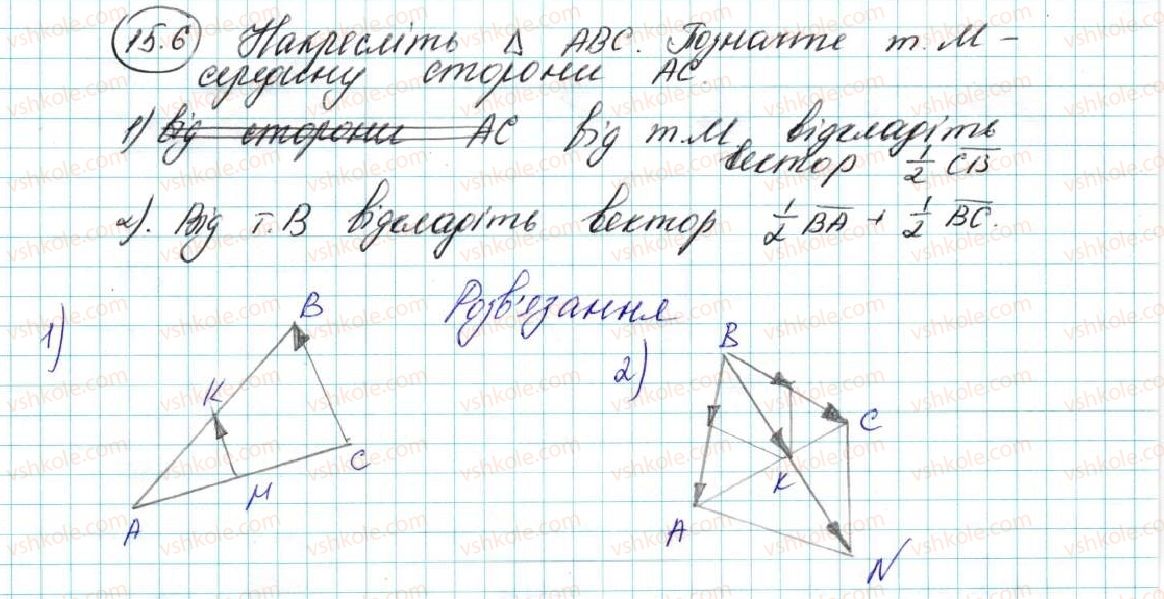 15.6 Накресліть Δ ABC. Позначте т. M –
середину сторони AC.
1) від сторони AC від т.M відкладіть
вектор 1/2 CB
2). Від т. B відкладіть вектор 1/2 BA + 1/2 BC.
Розв'язання
1)
B
K
C
M
A
2)
B
C
K
A
N